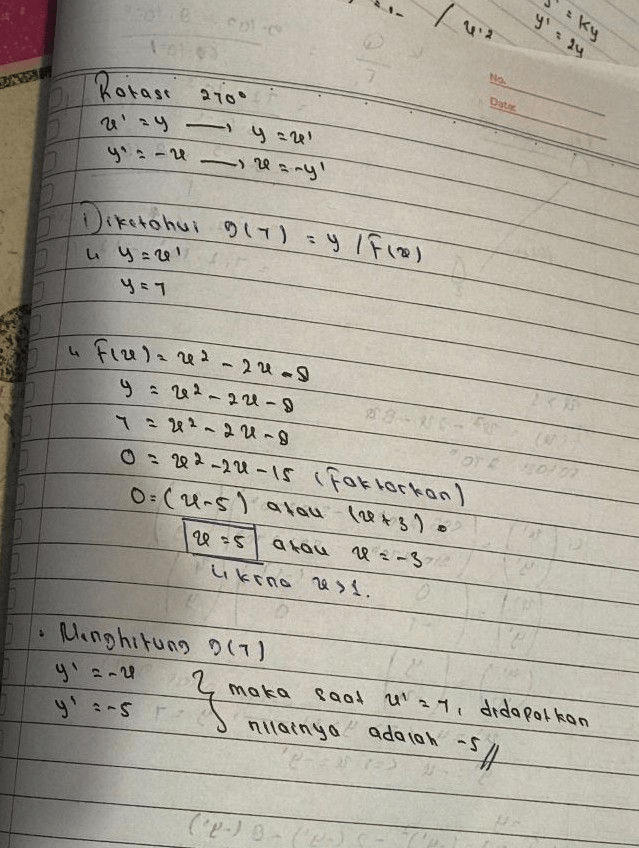 y' = ky
y' = 2y
No.
Date:
Rotasi 270°
x' = y → y = x'
y' = -x → x = -y'
Diketahui g(7) = y / F(x)
↳ y = x'
y = 7
↳ F(x) = x² - 2x - 8
y = x² - 2x - 8
7 = x² - 2x - 8
0 = x² - 2x - 15 (Faktorkan)
0 = (x-5) atau (x+3)
x = 5 atau x = -3
↳ krna x > 1.
• Menghitung g(7)
y' = -x
y' = -5
} maka saat x' = 7, didapatkan
nilainya adalah -5 //